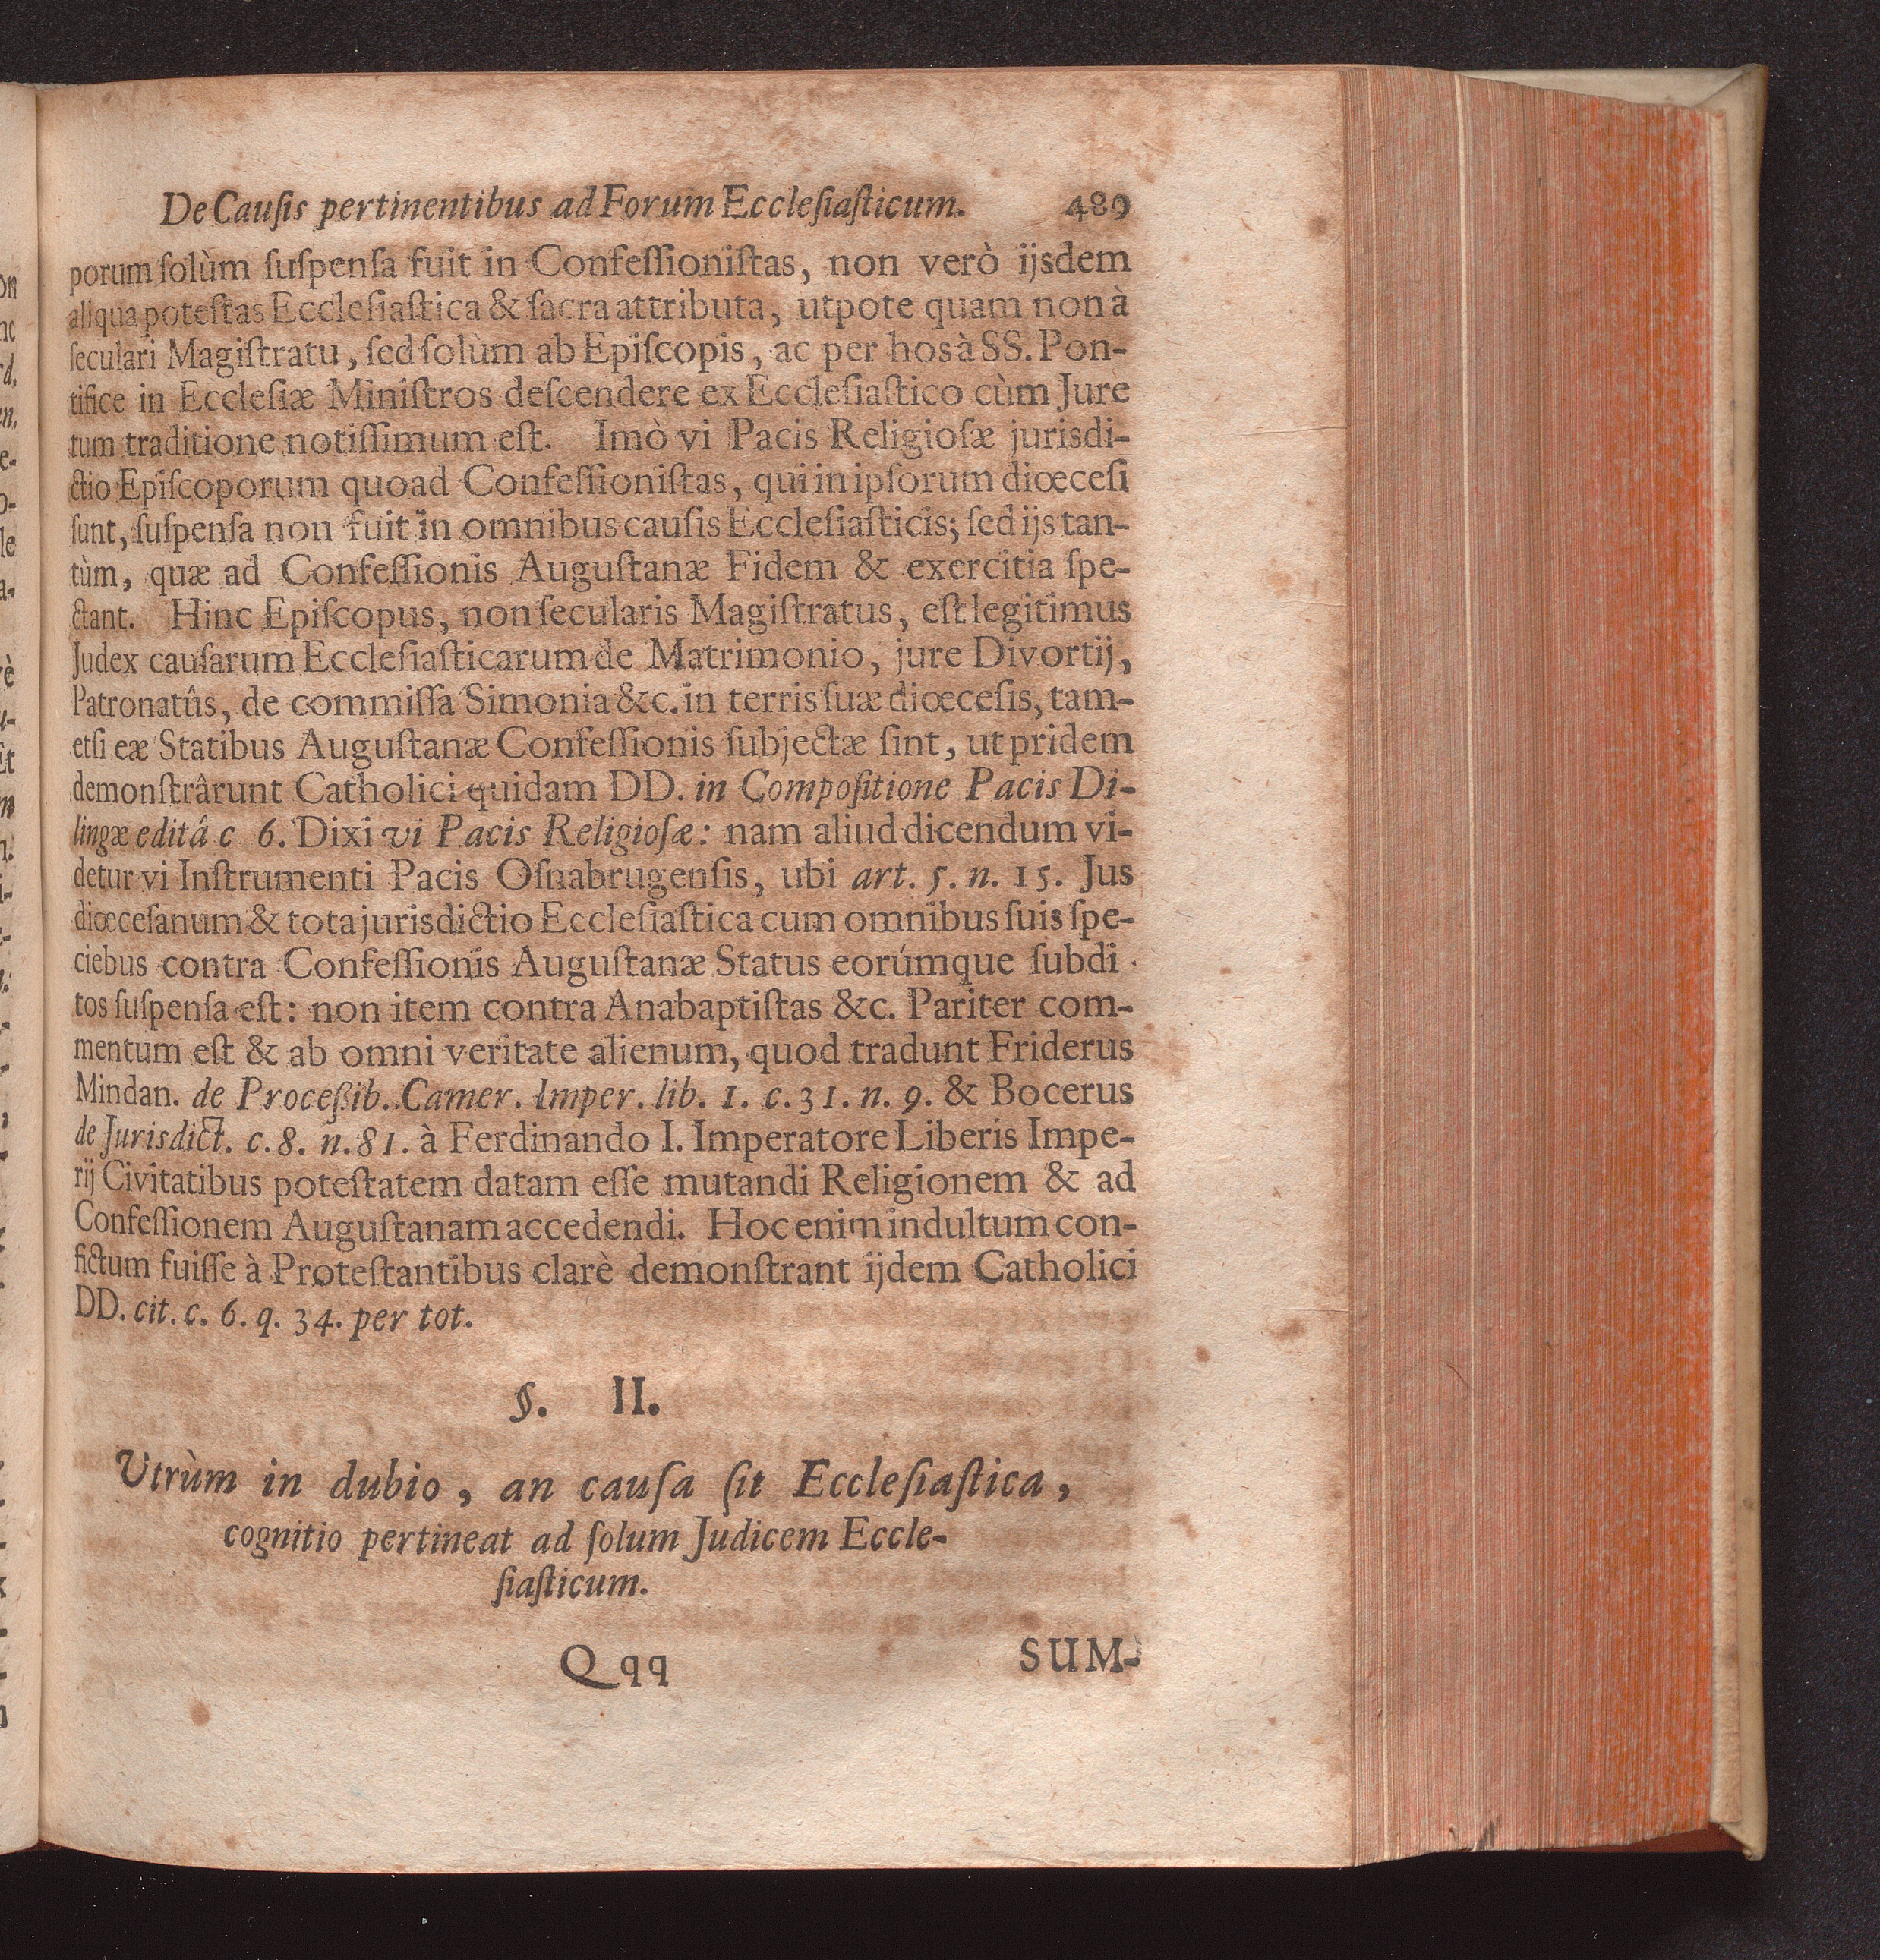 De Cauſis pertinentibus ad Forum Eccleſiaſticum. 489
porum ſolùm ſuſpenſa fuit in Confeſſioniſtas, non verò ijsdem
aliqua poteſtas Eccleſiaſtica & ſacra attributa, utpote quam non à
ſeculari Magiſtratu, ſed ſolùm ab Epiſcopis, ac per hos à SS. Pon-
tifice in Eccleſiæ Miniſtros deſcendere ex Eccleſiaſtico cùm Jure
tum traditione notiſſimum eſt. Imò vi Pacis Religioſæ jurisdi-
ctio Epiſcoporum quoad Confeſſioniſtas, qui in ipſorum diœceſi
ſunt, ſuſpenſa non fuit in omnibus cauſis Eccleſiaſticis; ſed ijs tan-
tùm, quæ ad Confeſſionis Auguſtanæ Fidem & exercitia ſpe-
ctant. Hinc Epiſcopus, non ſecularis Magiſtratus, eſt legitimus
Judex cauſarum Eccleſiaſticarum de Matrimonio, jure Divortij,
Patronatûs, de commiſſa Simonia &c. in terris ſuæ diœceſis, tam-
etſi eæ Statibus Auguſtanæ Confeſſionis ſubjectæ ſint, ut pridem
demonſtrârunt Catholici quidam DD. in Compoſitione Pacis Di-
lingæ editâ c 6. Dixi vi Pacis Religioſæ: nam aliud dicendum vi-
detur vi Inſtrumenti Pacis Oſnabrugenſis, ubi art. 5. n. 15. Jus
diœceſanum & tota jurisdictio Eccleſiaſtica cum omnibus ſuis ſpe-
ciebus contra Confeſſionis Auguſtanæ Status eorúmque ſubdi-
tos ſuſpenſa eſt: non item contra Anabaptiſtas &c. Pariter com-
mentum eſt & ab omni veritate alienum, quod tradunt Friderus
Mindan. de Proceßib. Camer. Imper. lib. 1. c. 31. n. 9. & Bocerus
de Jurisdict. c. 8. n. 81. à Ferdinando I. Imperatore Liberis Impe-
rij Civitatibus poteſtatem datam eſſe mutandi Religionem & ad
Confeſſionem Auguſtanam accedendi. Hoc enim indultum con-
fictum fuiſſe à Proteſtantibus clarè demonſtrant ijdem Catholici
DD. cit. c. 6. q. 34. per tot.
§. II.
Utrùm in dubio, an cauſa ſit Eccleſiaſtica,
cognitio pertineat ad ſolum Judicem Eccle-
ſiaſticum.
Qqq SUM-